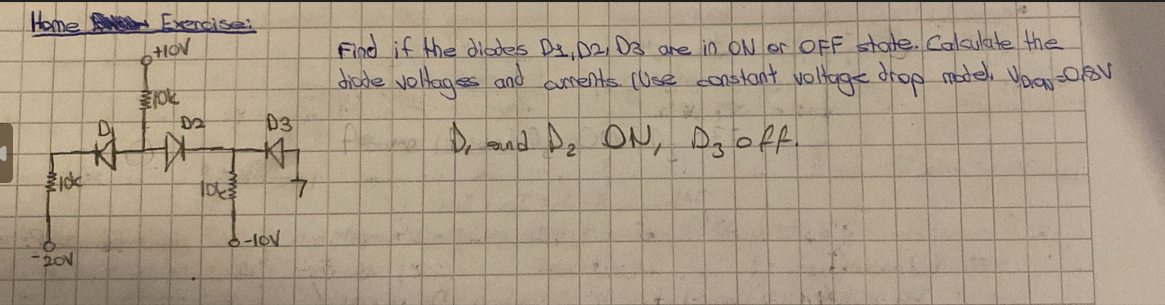 Home Exercise:
Find if the diodes D1, D2, D3 are in ON or OFF state. Calculate the
diode voltages and currents. (Use constant voltage drop model.
+10V
10k
D1
D2
D3
D1 and D2 ON, D3 off.
10k
10k
-10V
-20V